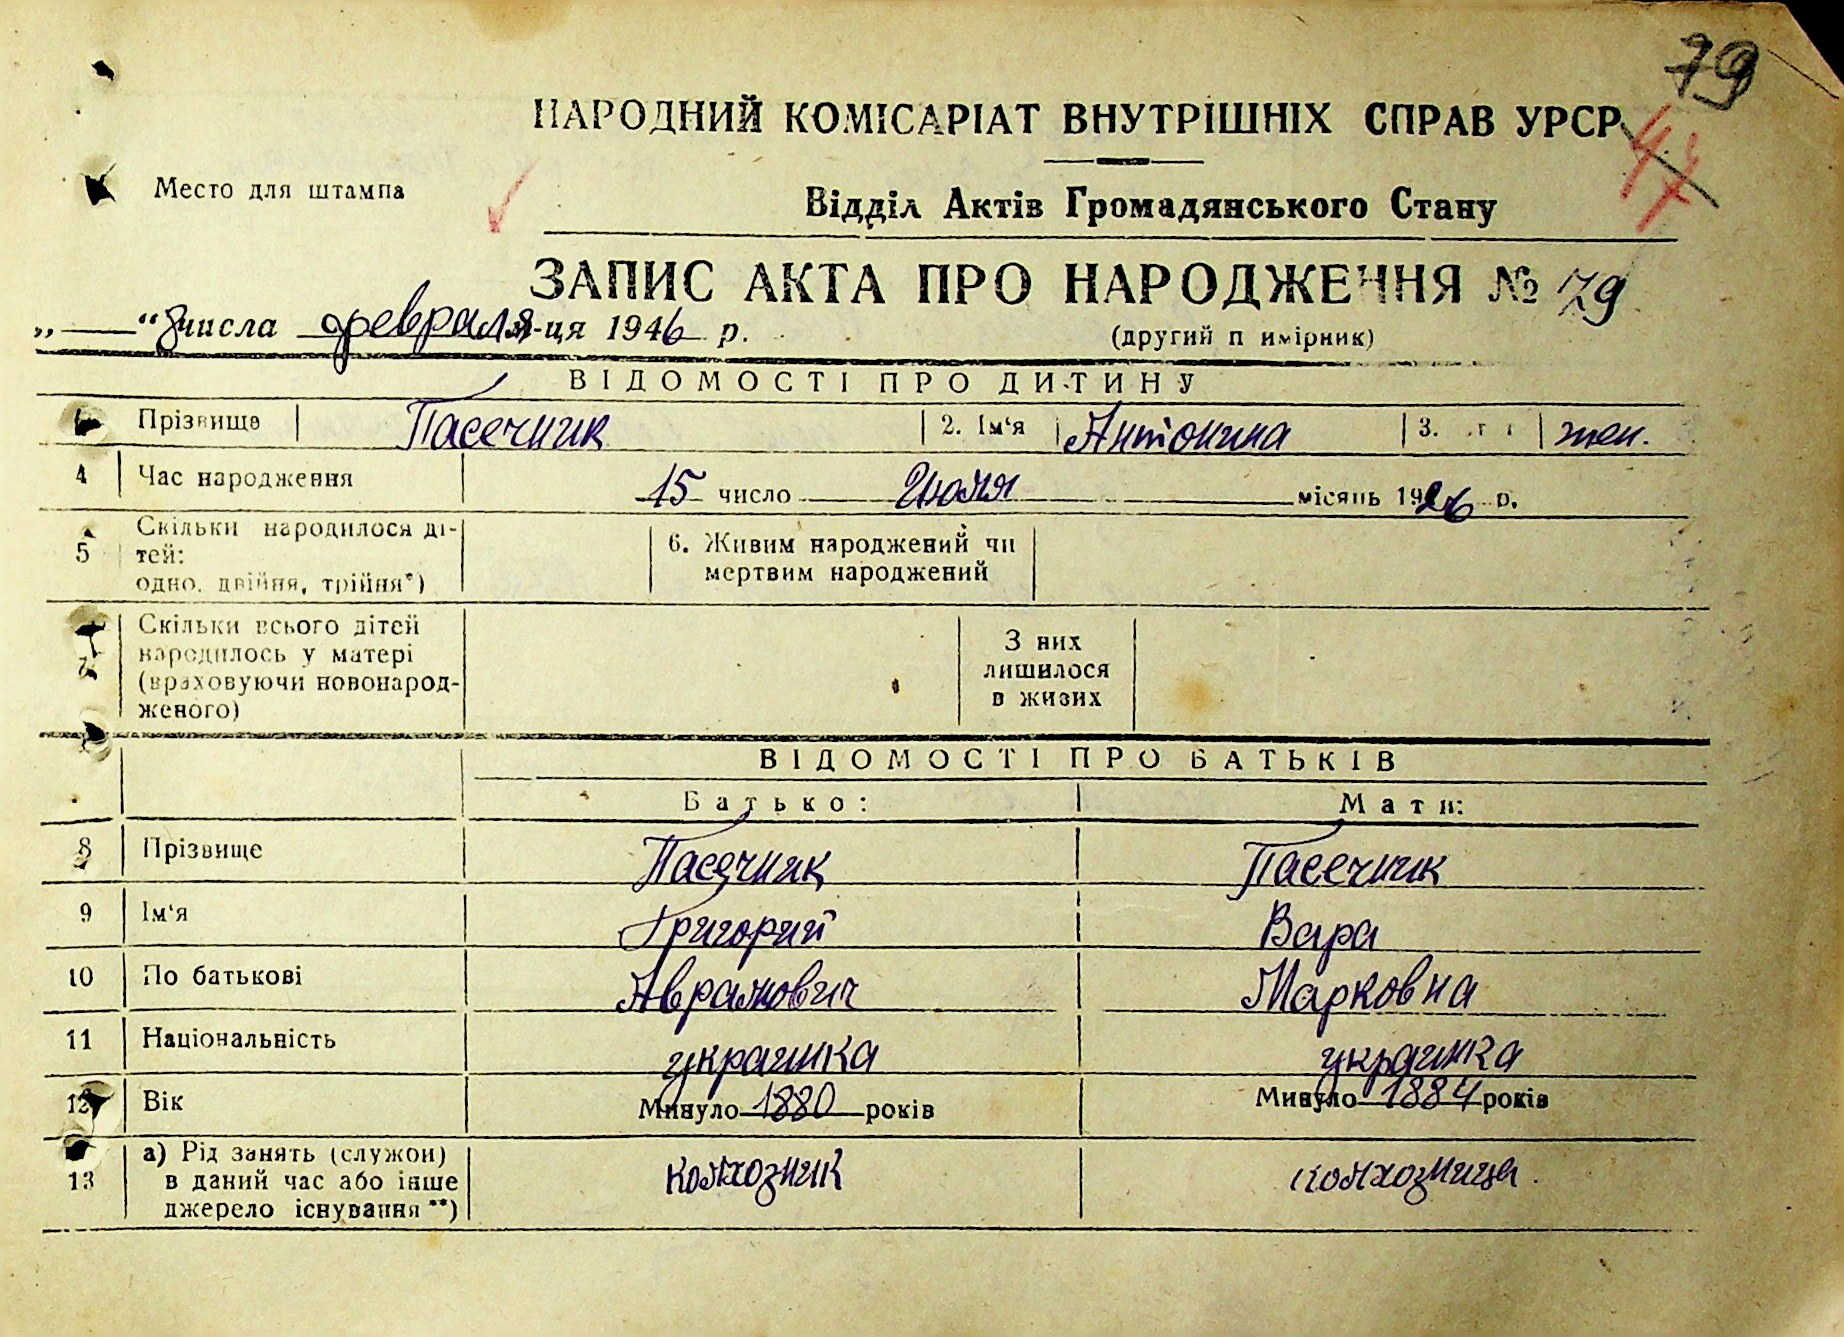 79
НАРОДНИЙ КОМІСАРІАТ ВНУТРІШНІХ СПРАВ УРСР
47
Место для штампа
Відділ Актів Громадянського Стану
ЗАПИС АКТА ПРО НАРОДЖЕННЯ № 79
„ “ 8 числа февраля м-ця 1946 р.
(другий п имірник)
ВІДОМОСТІ ПРО ДИТИНУ
Прізвище Пасечник 2. Ім'я Антонина 3. жен.
4 Час народження 15 число Июля місяць 1926 р.
5 Скільки народилося ді-
тей:
одно, двійня, трійня*)
6. Живим народжений чи
мертвим народжений
7 Скільки всього дітей
народилось у матері
(враховуючи новонарод-
женого)
З них
лишилося
в живих
ВІДОМОСТІ ПРО БАТЬКІВ
Батько: Мати:
8 Прізвище Пасечник Пасечник
9 Ім'я Григорий Вара
10 По батькові Аврамович Марковна
11 Національність украинка украинка
12 Вік Минуло 1880 років Минуло 1884 років
13 а) Рід занять (служби)
в даний час або інше
джерело існування **)
колхозник колхозница